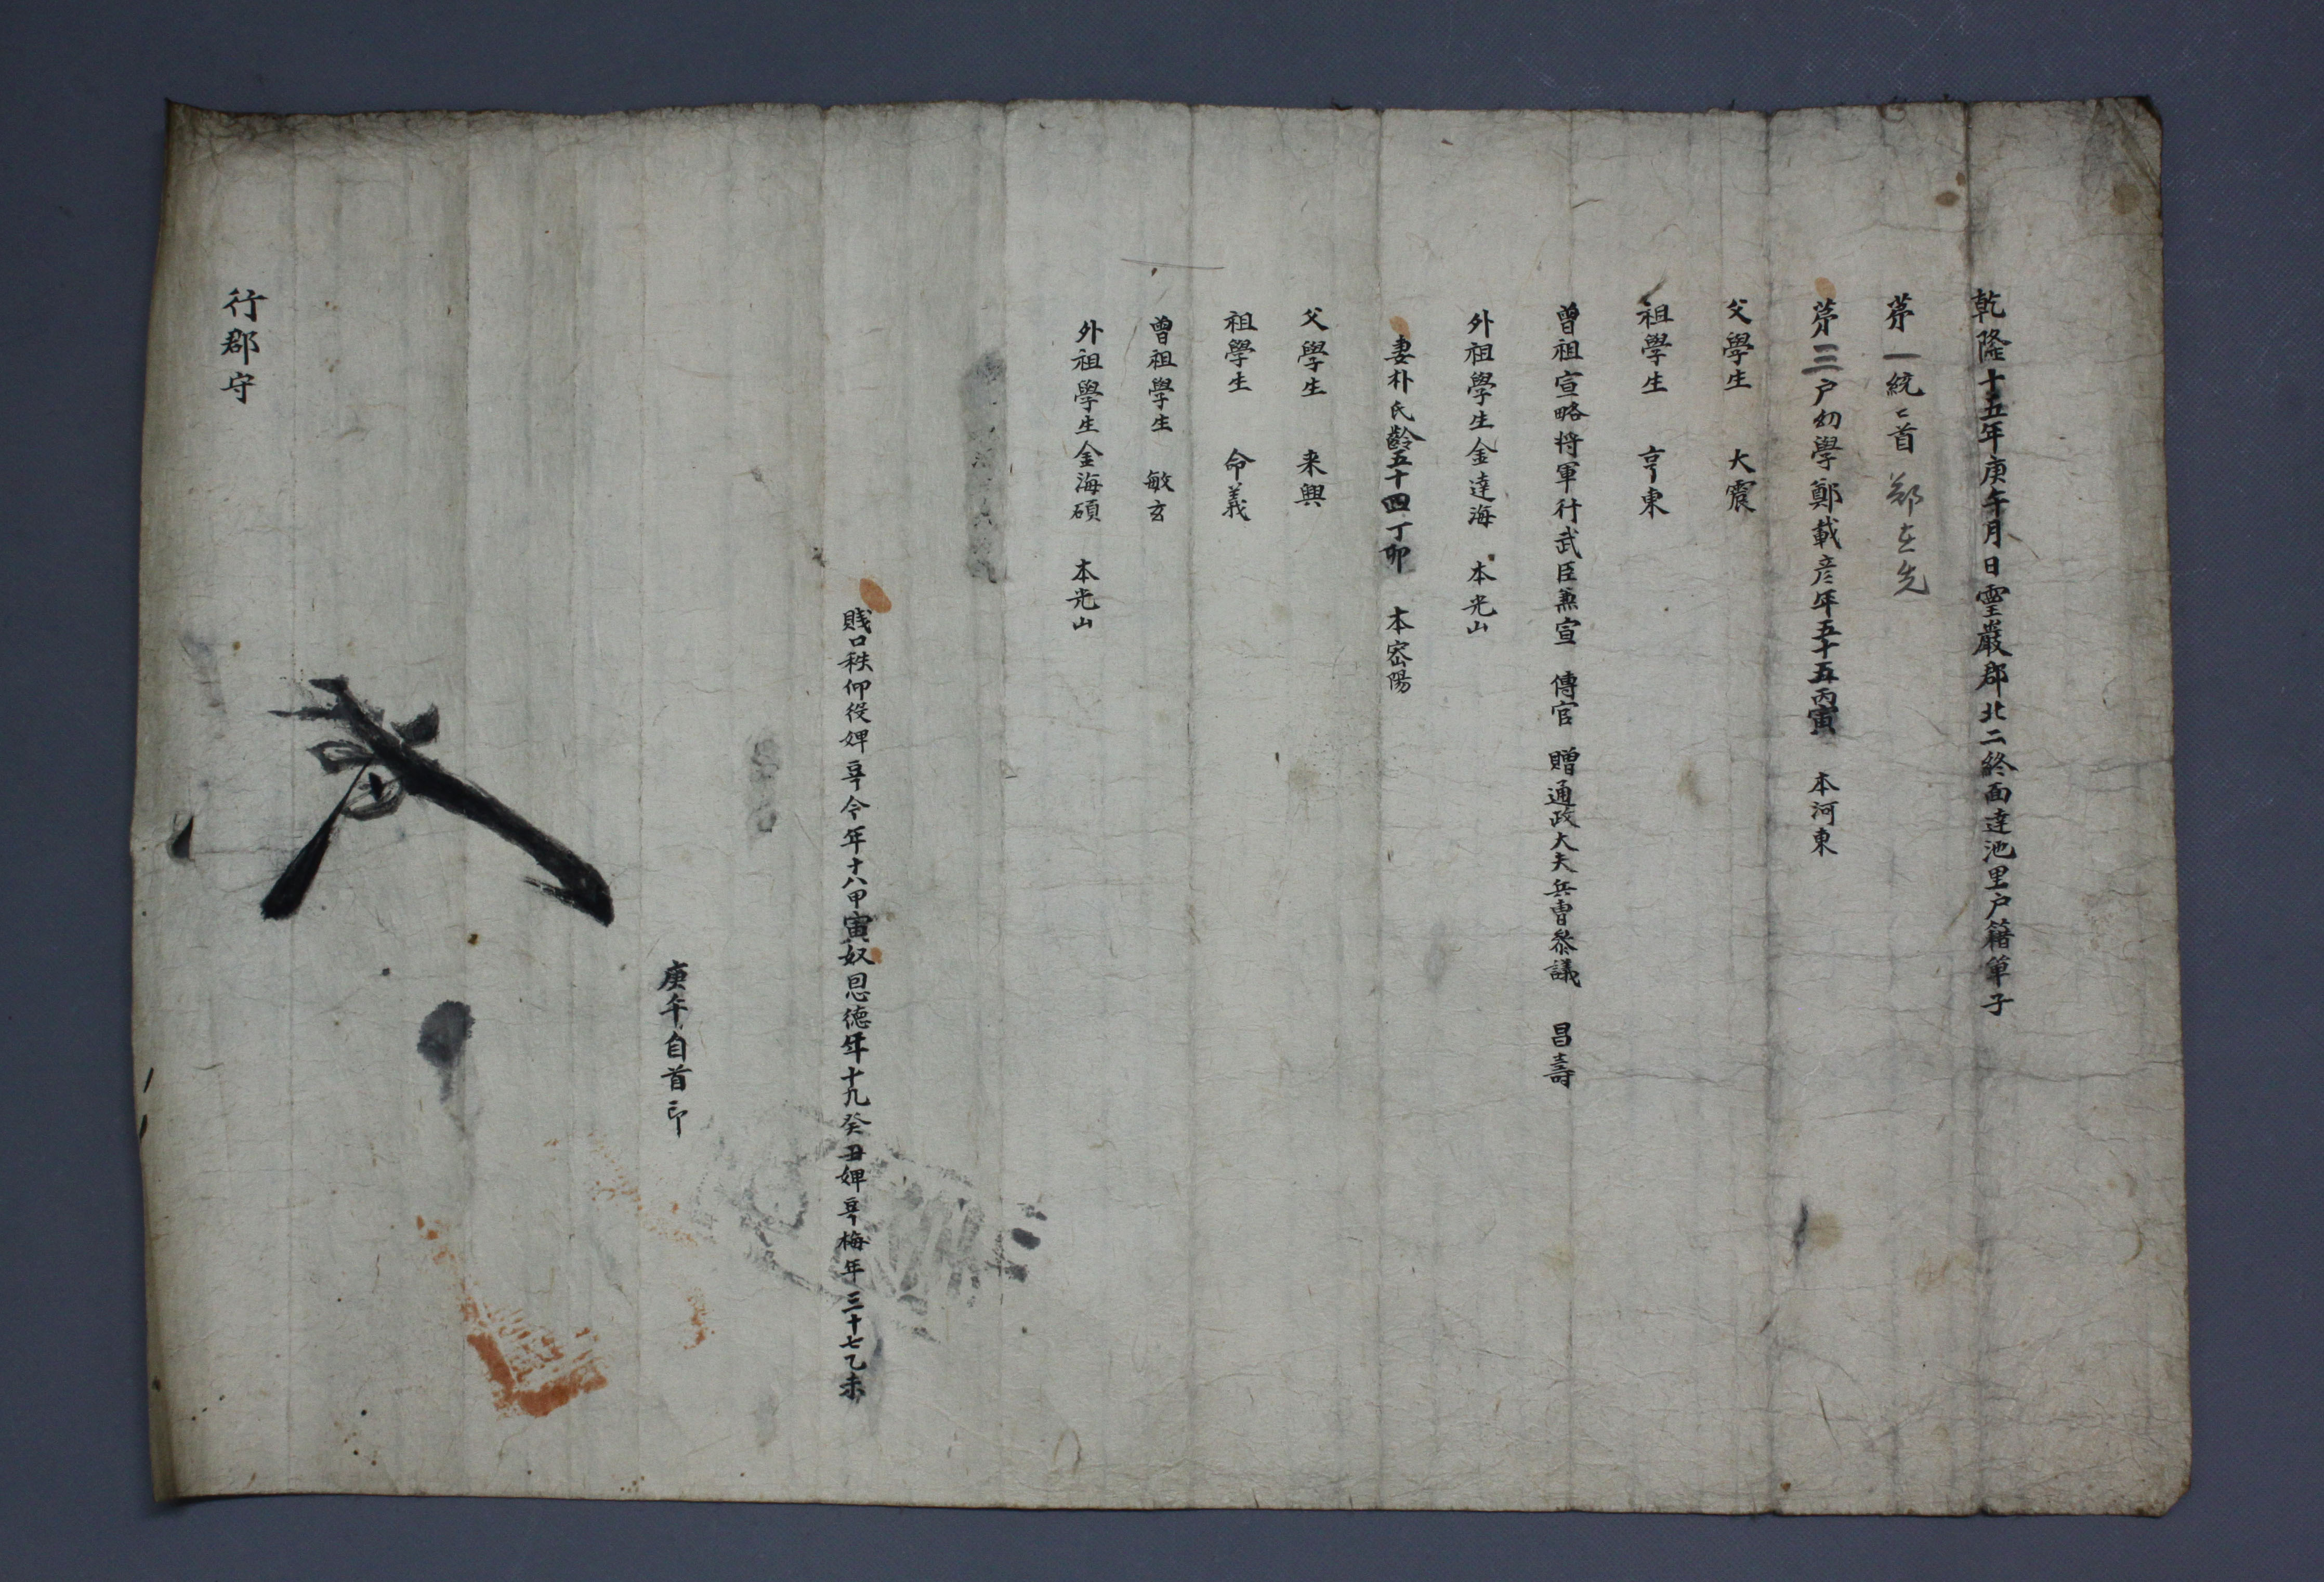 乾隆十五年庚午月日靈巖郡北二終面達池里戶籍單子
第一統二首 鄭
第三戶幼學鄭載彦年五十五丙寅 本河東
父學生 大震
祖學生 亨東
曾祖宣略將軍行武臣兼宣 傳官 贈通政大夫兵曹參議 昌壽
外祖學生金達海 本光山
妻朴氏齡五十四丁卯 本密陽
父學生 來興
祖學生 命義
曾祖學生 敏玄
外祖學生金海碩 本光山
賤口秩仰役婢 今年十八甲寅奴思德年十九癸丑婢 梅年三十七乙未
庚午自首印
行郡守